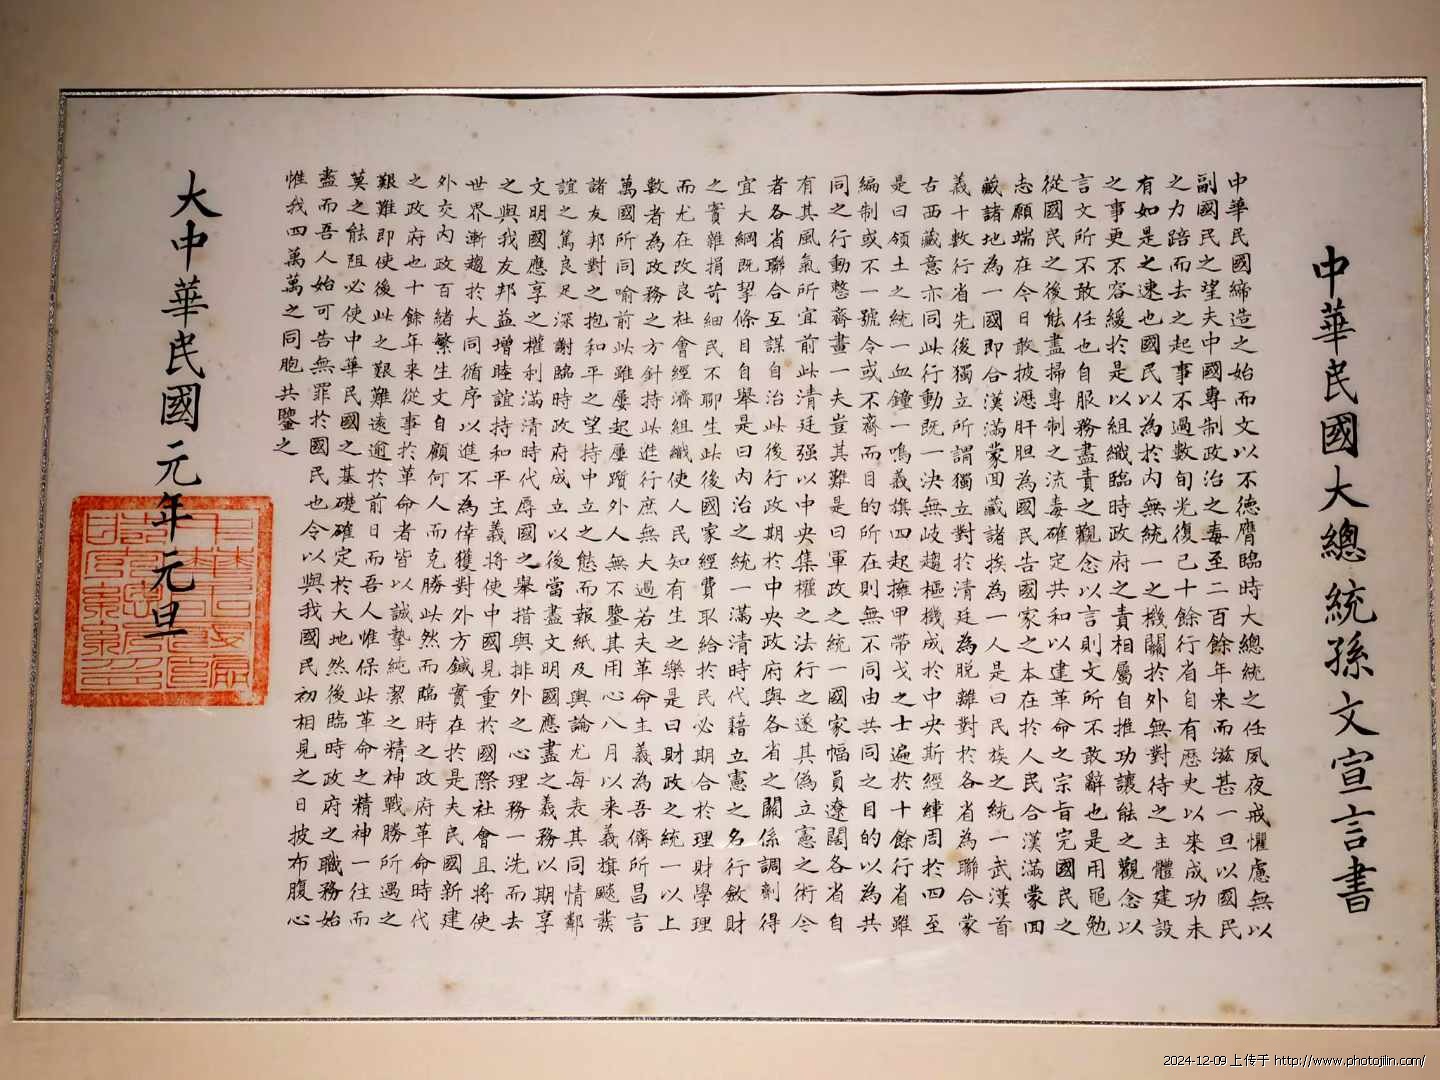 中華民國大總統孫文宣言書
中華民國締造之始而文以不德膺臨時大總統之任夙夜戒懼慮無以
副國民之望夫中國專制政治之毒至二百餘年来而滋甚一旦以國民
之力踣而去之起事不過數旬光復已十餘行省自有歷史以來成功未
有如是之速也國民以為於內無統一之機關於外無對待之主體建設
之事更不容緩於是以組織臨時政府之責相屬自推功讓能之觀念以
言文所不敢任也自服務盡責之觀念以言則文所不敢辭也是用黽勉
從國民之後能盡掃專制之流毒確定共和以建革命之宗旨完國民之
志願端在今日敢披瀝肝胆為國民告國家之本在於人民合漢滿蒙回
藏諸地為一國即合漢滿蒙回藏諸族為一人是曰民族之統一武漢首
義十數行省先後獨立所謂獨立對於清廷為脫離對於各省為聯合蒙
古西藏意亦同此行動既一決無歧趨樞機成於中央斯經緯周於四至
是曰領土之統一血鐘一鳴義旗四起擁甲帶戈之士遍於十餘行省雖
編制或不一號令或不齊而目的所在則無不同由共同之目的以為共
同之行動整齊畫一夫豈其難是曰軍政之統一國家幅員遼闊各省自
有其風氣所宜前此清廷强以中央集權之法行之遂其偽立憲之術今
者各省聯合互謀自治此後行政期於中央政府與各省之關係調劑得
宜大綱既挈條目自舉是曰內治之統一滿清時代藉立憲之名行斂財
之實雜捐苛細民不聊生此後國家經費取給於民必期合於理財學理
而尤在改良社會經濟組織使人民知有生之樂是曰財政之統一以上
數者為政務之方針持此進行庶無大過若夫革命主義為吾儕所昌言
萬國所同喻前此雖屢起屢躓外人無不鑒其用心八月以来義旗飈發
諸友邦對之抱和平之望持中立之態而報紙及輿論尤每表其同情鄰
誼之篤良足深謝臨時政府成立以後當盡文明國應盡之義務以期享
文明國應享之權利滿清時代辱國之舉措與排外之心理務一洗而去
之與我友邦益增睦誼持和平主義將使中國見重於國際社會且將使
世界漸趨於大同循序以進不為倖獲對外方鍼實在於是夫民國新建
外交內政百緒繁生文自顧何人而克勝此然而臨時之政府革命時代
之政府也十餘年来從事於革命者皆以誠摯純潔之精神戰勝所遇之
艱難即使後此之艱難遠逾於前日而吾人惟保此革命之精神一往而
莫之能阻必使中華民國之基礎確定於大地然後臨時政府之職務始
盡而吾人始可告無罪於國民也今以與我國民初相見之日披布腹心
惟我四萬萬之同胞共鑒之
大中華民國元年元旦
中華民國臨
時大總統印
2024-12-09 上传于 http://www.photojilin.com/